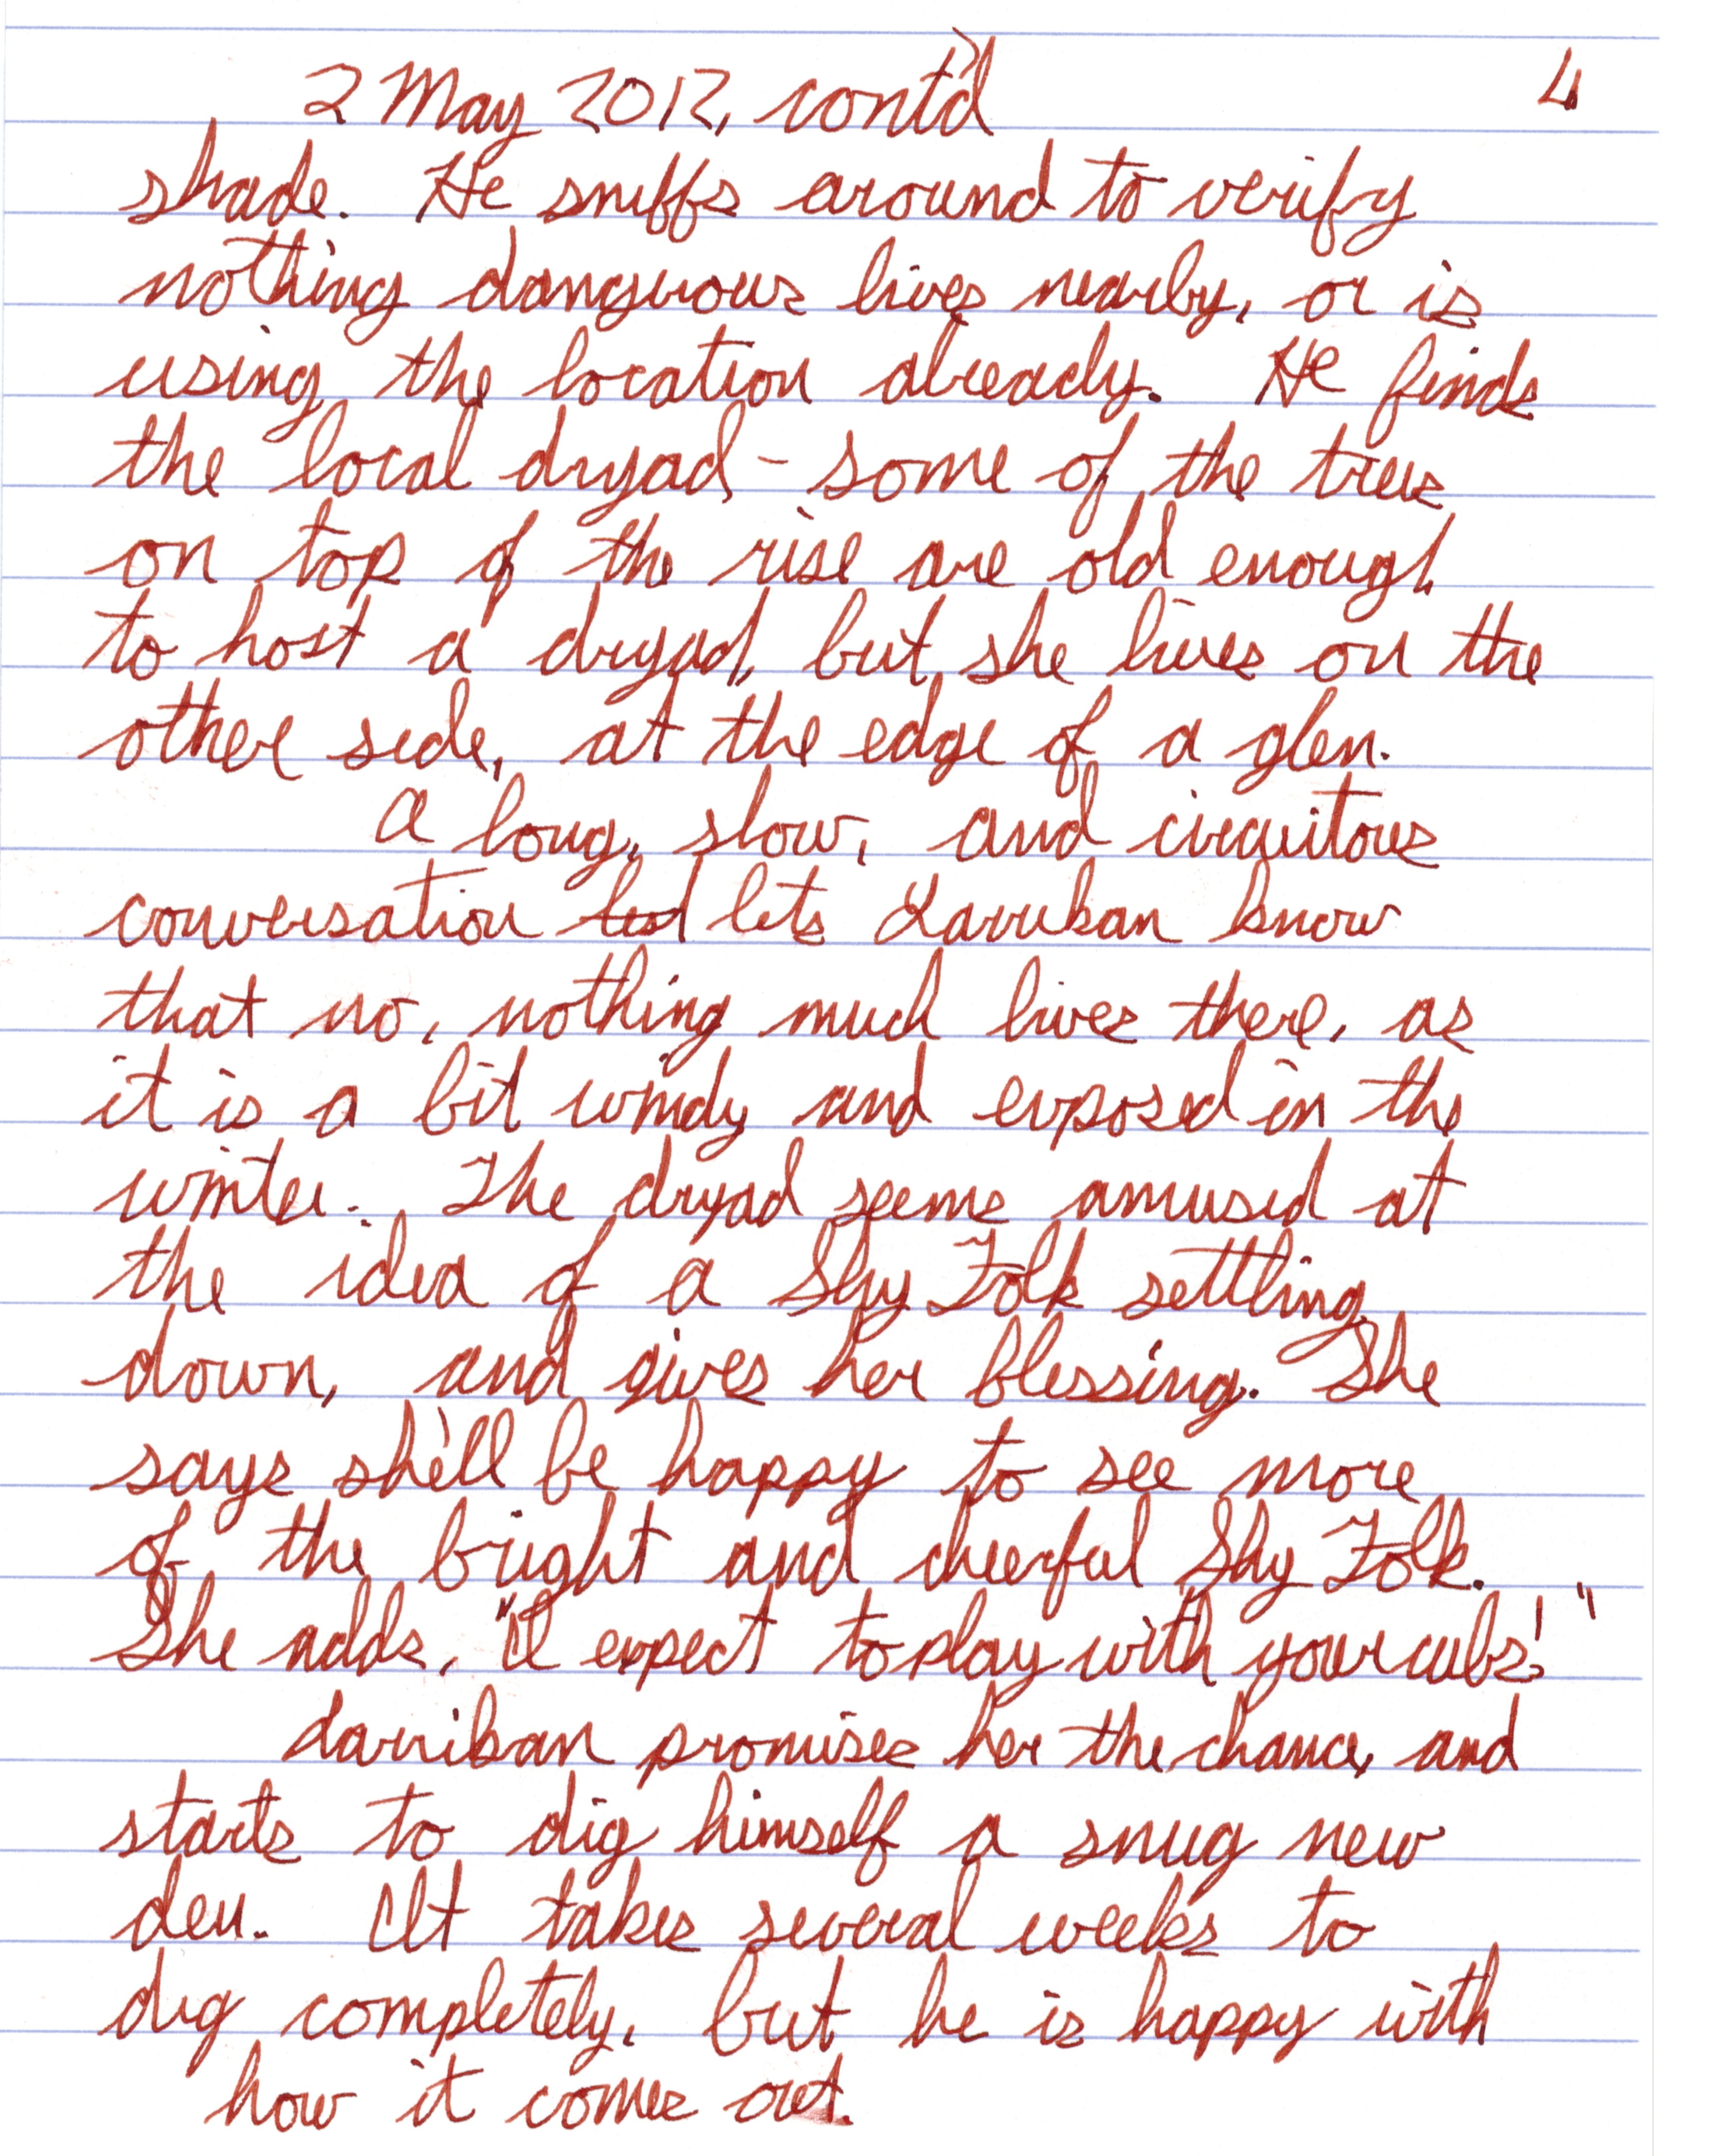 2 May 2012, cont'd 4
shade. He sniffs around to verify
nothing dangerous lives nearby, or is
using the location already. He finds
the local dryad - some of the trees
on top of the rise are old enough
to host a dryad, but she lives on the
other side, at the edge of a glen.
A long, slow, and circuitous
conversation lets Larriban know
that no, nothing much lives there, as
it is a bit windy and exposed in the
winter. The dryad seems amused at
the idea of a Shy Folk settling
down, and gives her blessing. She
says she'll be happy to see more
of the bright and cheerful Shy Folk.
She adds, "I expect to play with your cubs!"
Larriban promises her the chance, and
starts to dig himself a snug new
den. It takes several weeks to
dig completely, but he is happy with
how it comes out.